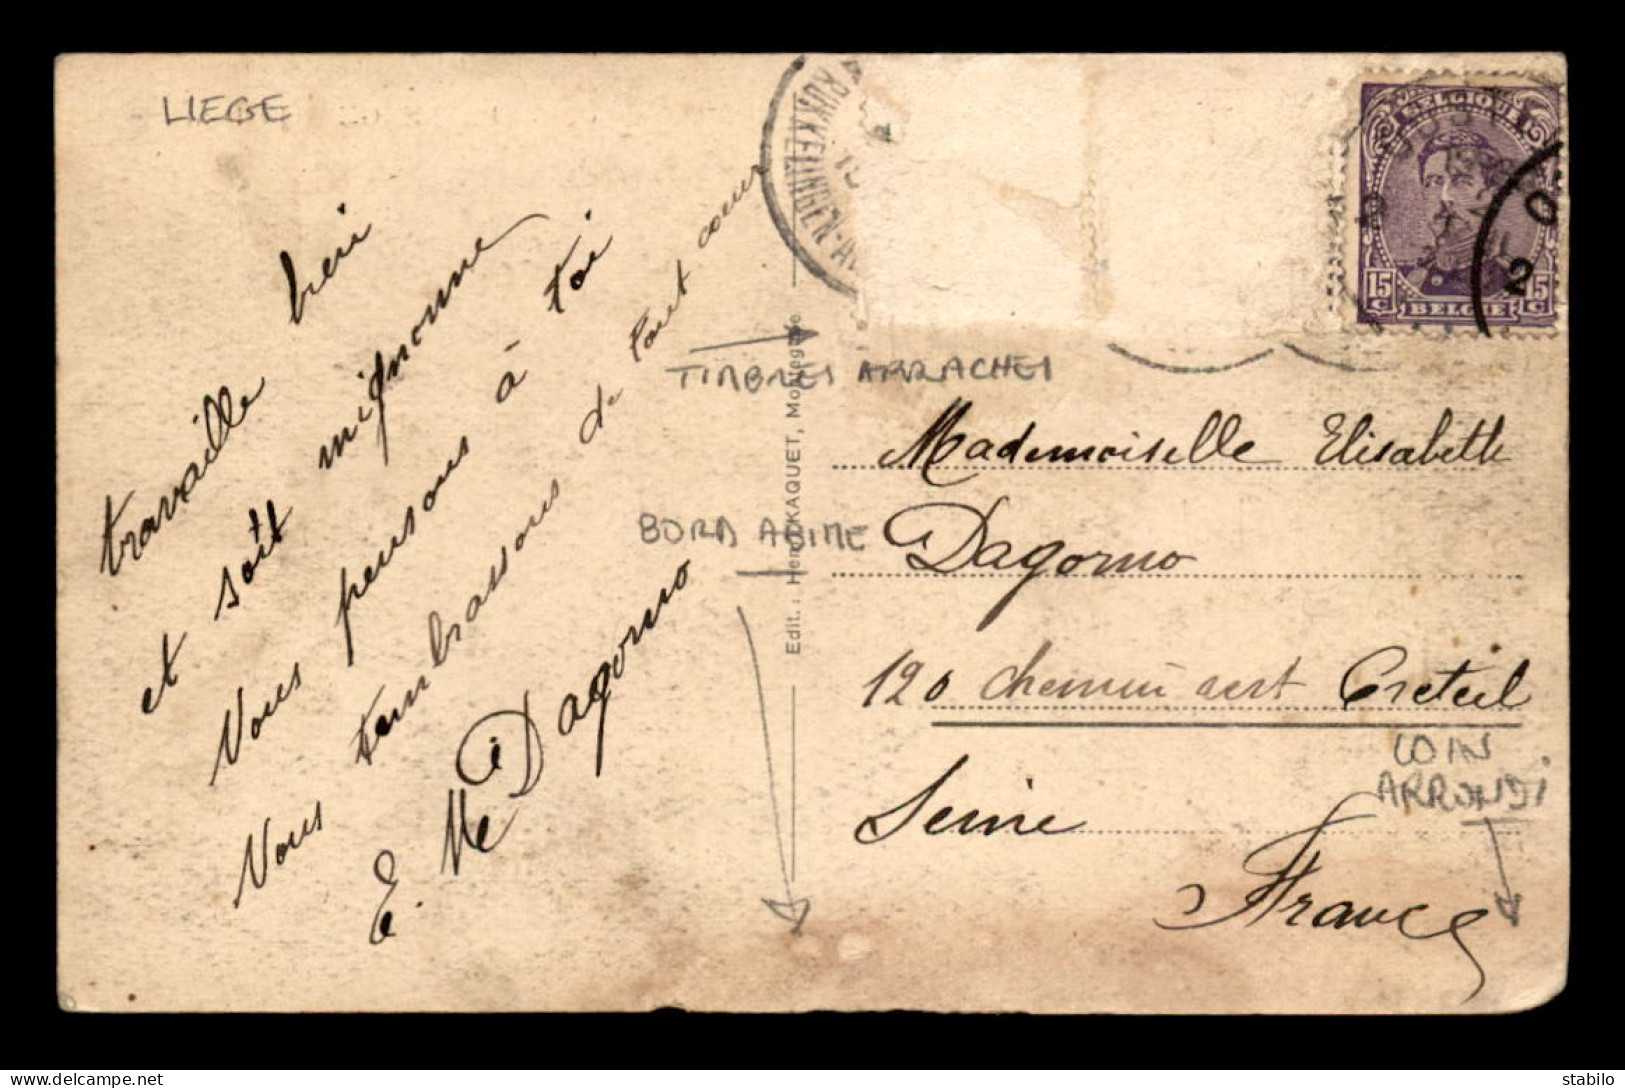 LIEGE
travaille bien
et soit mignonne
Vous pensons à toi
Vous tembrassons de tout cœur
E. Me Dagorno
TIMBRES ARRACHES
BORD ABIME
Edit. : Henri KAQUET, Montegnée
BELGIQUE
15 C 15 C
BELGIË
2
Mademoiselle Elisabeth
Dagorno
120 chemin vert Creteil
Seine
France
COIN
ARRONDI
delcampe.net
stabilos